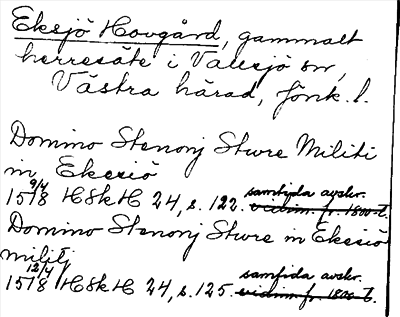 Eksjö Hovgård, gammalt
herresäte i Vallsjö sn,
Västra härad, Jönk. l.
Domino Stenonj Sture Militi
in Ekesiö
15 9/4 18 HSkH 24, s. 122. samtida avskr. vidim. fr. 1800-t.
Domino Stenonj Sture in Ekesiö
militj
15 12/4 18 HSkH 24, s. 125. samtida avskr. vidim. fr. 1800-t.